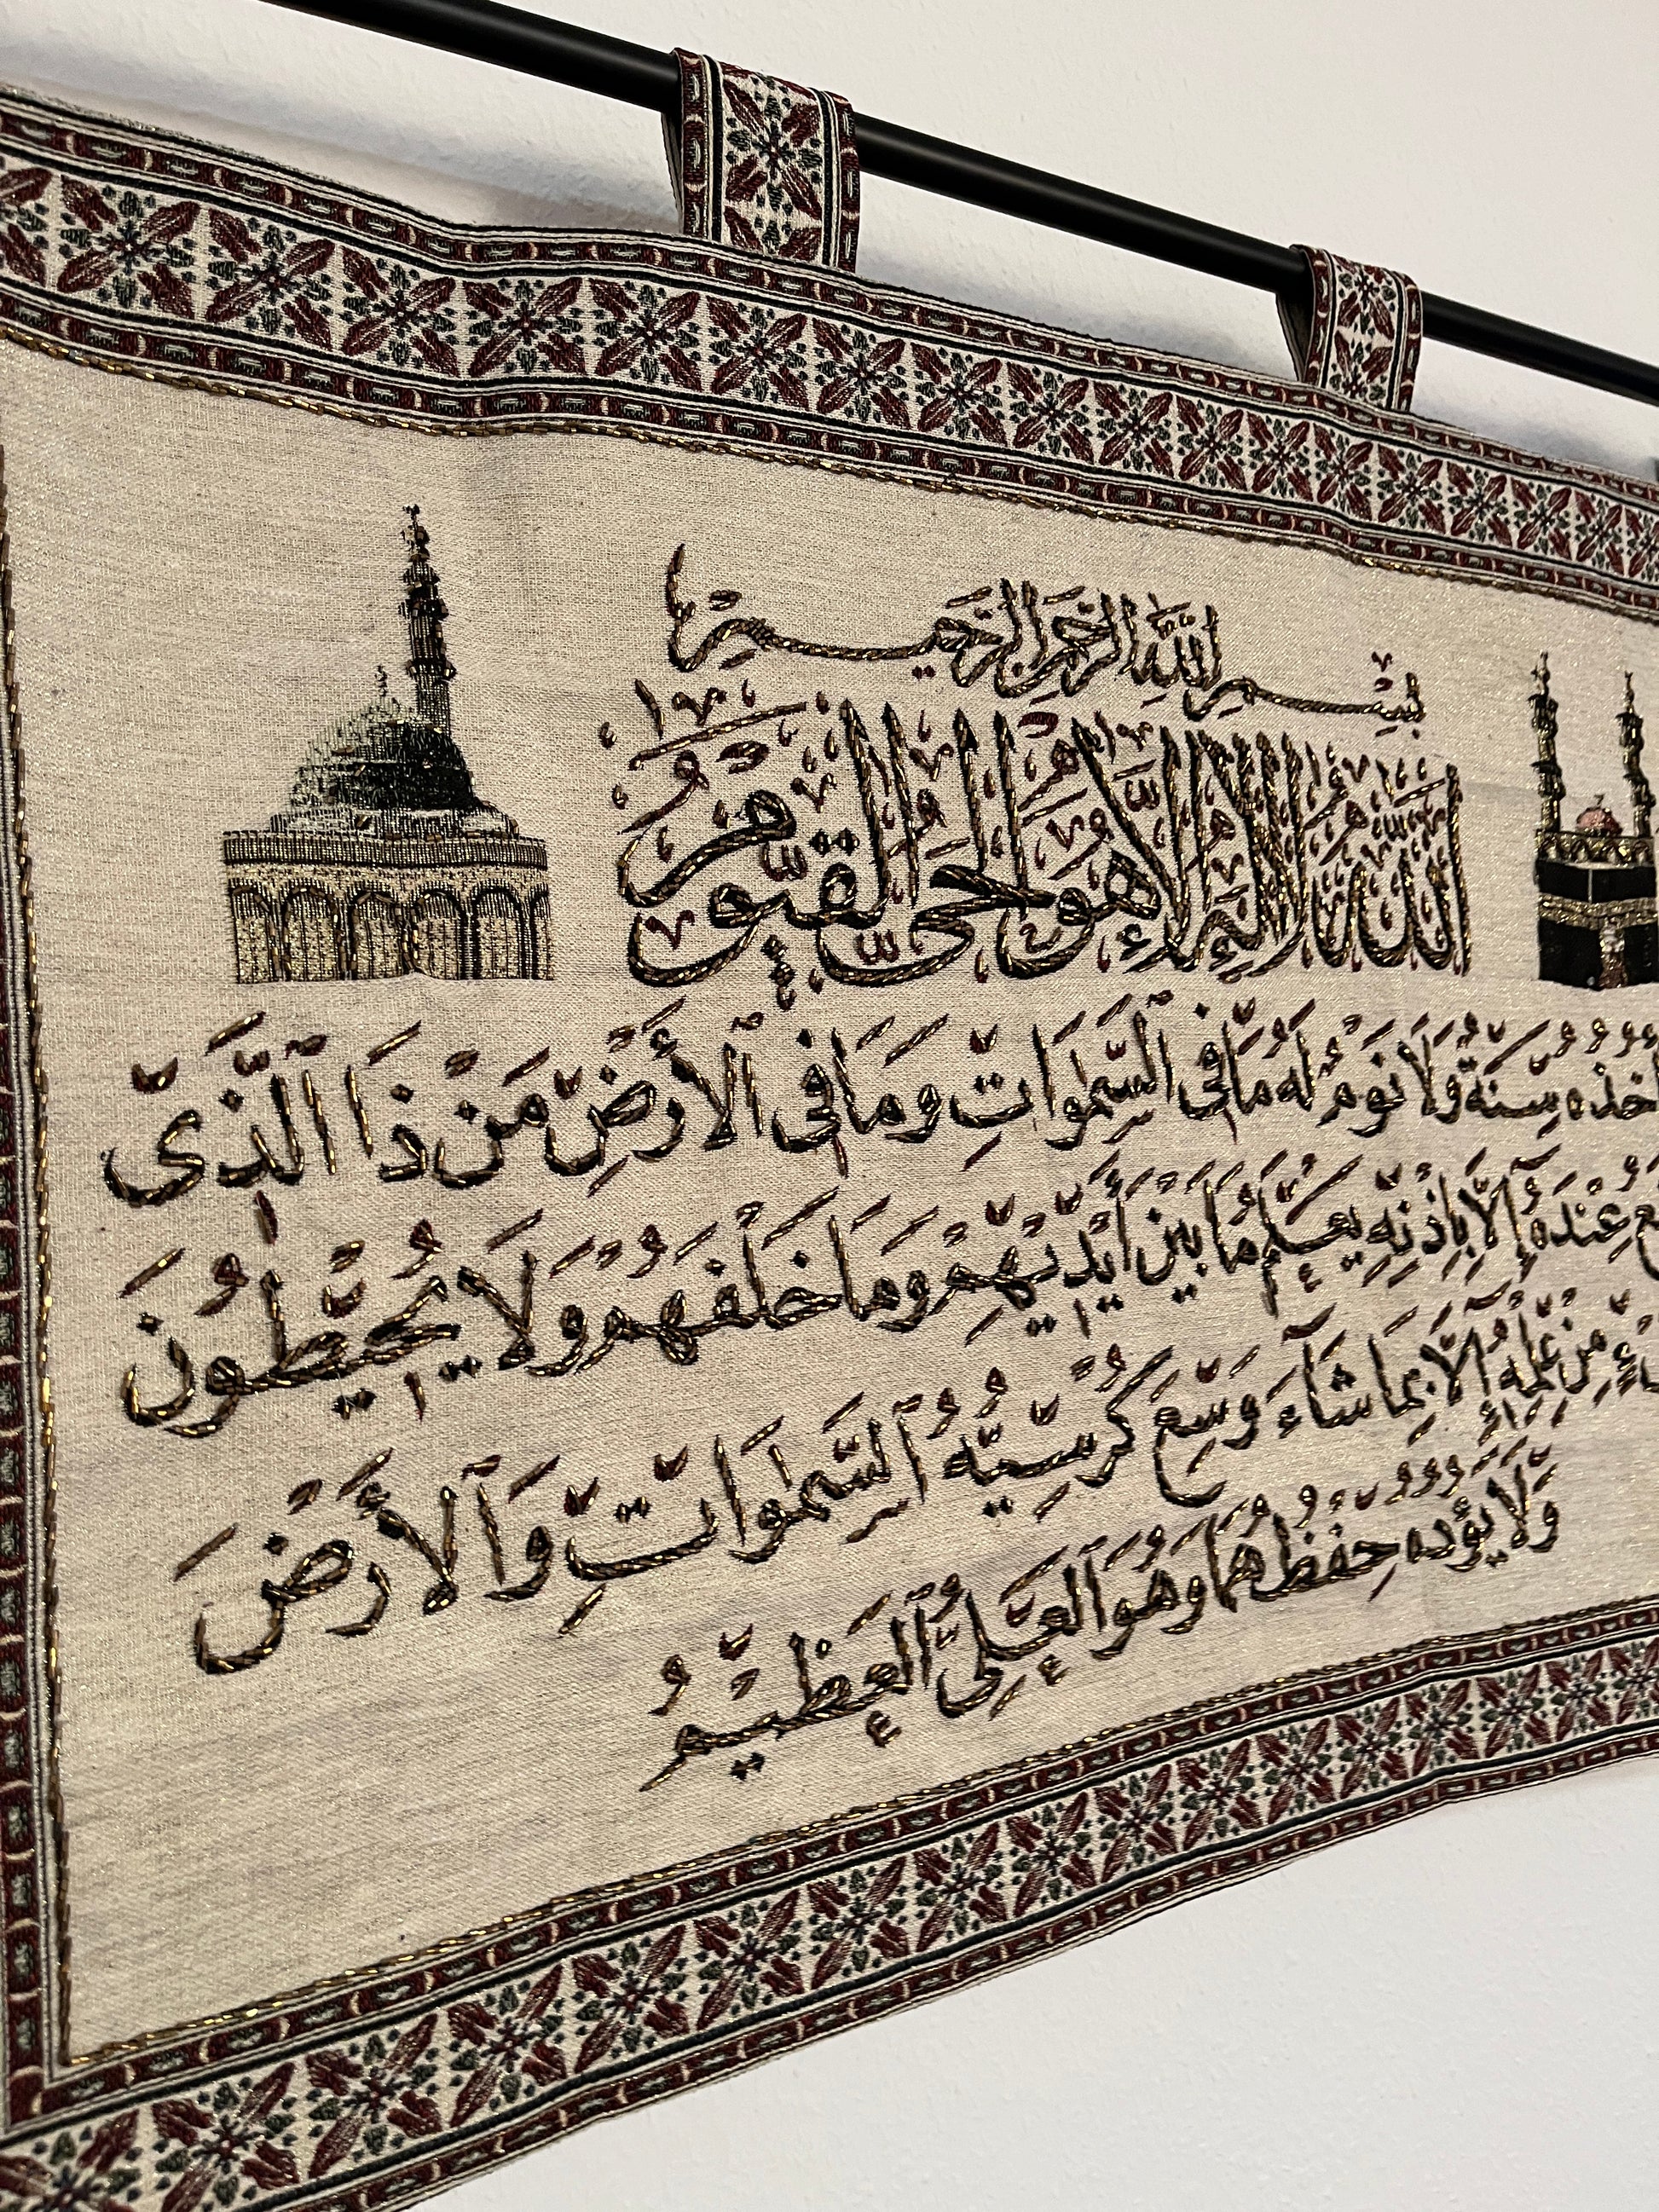 بِسْمِ اللَّهِ الرَّحْمَنِ الرَّحِيمِ
اللَّهُ لَا إِلَٰهَ إِلَّا هُوَ الْحَيُّ الْقَيُّومُ
سِنَةٌ وَلَا نَوْمٌ لَهُ مَا فِي ٱلسَّمٰوَاتِ وَمَا فِي ٱلْأَرْضِ مَنْ ذَا ٱلَّذِي
عِنْدَهُ إِلَّا بِإِذْنِهِ يَعْلَمُ مَا بَيْنَ أَيْدِيْهِمْ وَمَا خَلْفَهُمْ وَلَا يُحِيْطُونَ
مِنْ عِلْمِهِ إِلَّا بِمَا شَآءَ وَسِعَ كُرْسِيُّهُ ٱلسَّمٰوَاتِ وَٱلْأَرْضَ
وَلَا يَؤُدُهُ حِفْظُهُمَا وَهُوَ ٱلْعَلِيُّ ٱلْعَظِيْمُ